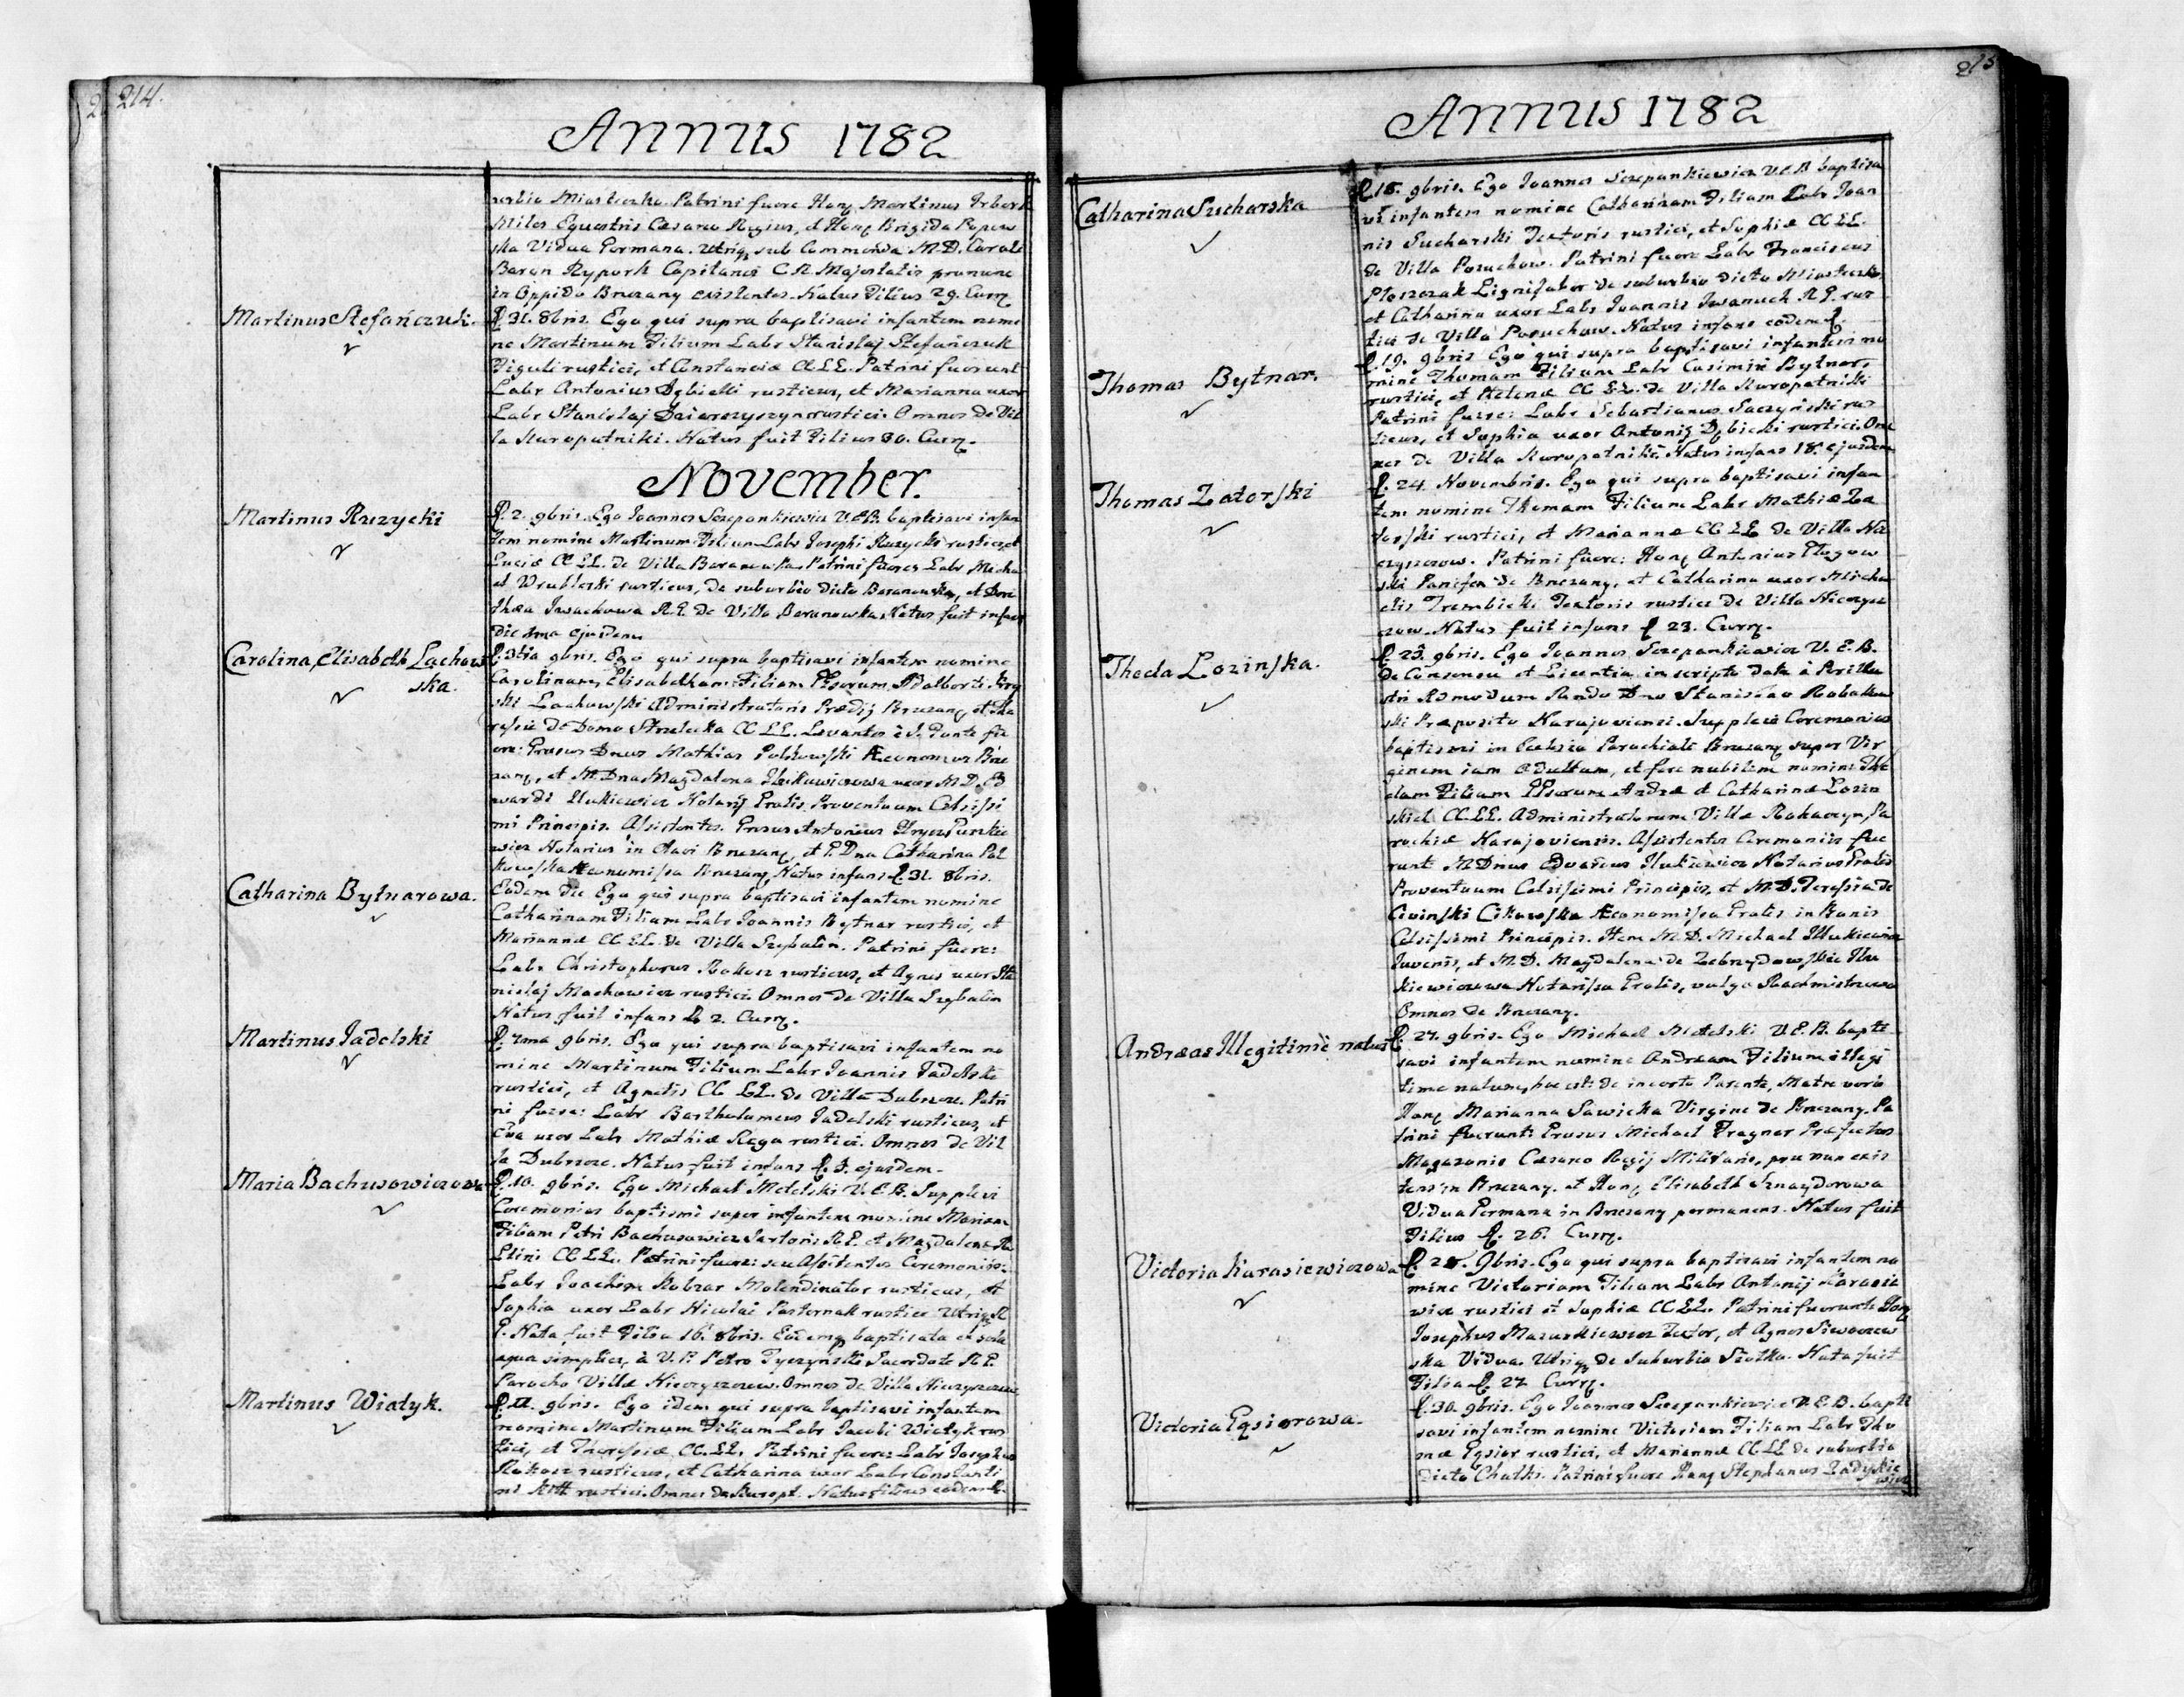 214.
Annus 1782
Patrini fuere Hon Martinus
Miles Equestris Cæsareo Regius, et Hon Brigida
ska Vidua Germana. Utriq sub Commenda M.D. Caroli
Baron Capitanei C.R. Majestatis pronunc
in Oppido Brzezany existentes. Natus Filius 29. Curr.
Martinus Stefańczuk.
D. 31. 8bris. Ego qui supra baptisavi infantem nomi
ne Martinum Filium Labr Stanislaj Stefańczuk
Figuli rustici, et Constanciæ CC.LL. Patrini fuerunt
Labr Antonius Dębicki rusticus, et Marianna uxor
Labr Stanislaj rustici. Omnes de Vil
la Kuropatniki. Natus fuit Filius 30. Curr.
November.
Martinus Ruzycki
D. 2. 9bris. Ego Joannes Szczepankiewicz V.E.B. baptisavi infan
tem nomine Martinum Filium Labr Josephi Ruzycki rustici, et
Luciæ CC.LL. de Villa Baranowka. Patrini fuere Labr Micha
el Wrublewski rusticus, de suburbio dicto Baranowka, et Doro
thea Iwachowa R.G. de Villa Baranowka. Natus fuit infans
die 1ma ejusdem
Carolina Elisabeth Lachow
ska.
D. 3tia 9bris. Ego qui supra baptisavi infantem nomine
Carolinam, Elisabetham Filiam Adalberti
ski Lachowski Administratoris Prædij Brzezany, et The
resiæ de Domo Strzelecka CC.LL. Levantes è S. Fonte fu
ere: Dnus Mathias Polkowski Æconomus Brze
zany, et M. Dna Magdalena Ilukiewiczowa uxor M.D. Ed
wardi Ilukiewicz Notarij Gralis Proventuum Celsissi
mi Principis. Assistentes. Antonius
wicz Notarius in Clavi Brzezany, et G. Dna Catharina Pol
kowska Æconomissa Brzezany. Natus infans D. 31. 8bris.
Catharina Bytnarowa.
Eodem die Ego qui supra baptisavi infantem nomine
Catharinam Filiam Labr Joannis Bytnar rustici, et
Mariannæ CC.LL. de Villa Szybalin. Patrini fuere:
Labr Christophorus Rokosz rusticus, et Agnes uxor Sta
nislaj Machowicz rustici. Omnes de Villa Szybalin
Natus fuit infans D. 2. Curr.
Martinus Jadelski
D. 7ma 9bris. Ego qui supra baptisavi infantem no
mine Martinum Filium Labr Joannis Jadelski
rustici, et Agnetis CC LL. de Villa Dubszcze. Patri
ni fuere: Labr Bartholomeus Jadelski rusticus, et
Eva uxor Labr Mathiæ Rega rustici. Omnes de Vil
la Dubszcze. Natus fuit infans D. 3. ejusdem.
Maria Bachusowiczowa
D. 10. 9bris. Ego Michael Metelski V.E.B. Supplevi
Ceremonias baptismi super infantem nomine Mariam
Filiam Petri Bachusowicz Sartoris R.G. et Magdalenæ
CC.LL. Patrini fuere: seu Assistentes Ceremoniis:
Labr Joachim Kobzar Molendinator rusticus, et
Sophia uxor Labr Nicolai Pasternak rustici Utriq R.
G. Nata fuit Filia 16. 8bris. Eodemq baptisata ex sola
aqua simplici, à V.P. Petro Tyczynski Sacerdote R.G.
Parocho Villæ Hieczyszczow. Omnes de Villa
Martinus Wiatyk.
D. 11. 9bris. Ego idem qui supra baptisavi infantem
nomine Martinum Filium Labr Jacobi Wiatyk rus
tici, et Theresiæ CC.LL. Patrini fuere: Labr Josephus
Rokosz rusticus, et Catharina uxor Labr Constanti
ni rustici. Omnes de Kuropt. Natus Filius eodem D.
215
Annus 1782
Catharina Sucharska
D. 18. 9bris. Ego Joannes Szczepankiewicz V.E.B. baptisa
vi infantem nomine Catharinam Filiam Labr Joan
nis Sucharski Textoris rustici, et Sophiæ CC LL.
de Villa Poruchow. Patrini fuere Labr Franciscus
Ptoszczak Lignifaber de suburbio dicto Miasteczko,
et Catharina uxor Labr Joannis Iwanuch R.G. rus
tici de Villa Poruchow. Natus infans eodem D.
Thomas Bytnar.
D. 19. 9bris Ego qui supra baptisavi infantem no
mine Thomam Filium Labr Casimiri Bytnar,
rustici, et Helenæ CC LL. de Villa Kuropatniki
Patrini fuere: Labr Sebastianus Saczyński rus
ticus, et Sophia uxor Antonij Dębicki rustici. Om
nes de Villa Kuropatniki. Natus infans 18. ejusdem
Thomas Zatorski
D. 24. Novembris. Ego qui supra baptisavi infan
tem nomine Thomam Filium Labr Mathiæ Za
torski rustici, et Mariannæ CC LL de Villa
Patrini fuere: Hon Antonius Głogow
ski Panifex de Brzezany, et Catharina uxor Micha
elis Trembicki Textoris rustici de Villa
Natus fuit infans D. 23. Curr.
Thecla Lozinska.
D. 25. 9bris. Ego Joannes Szczepankiewicz V.E.B.
de Consensu et Licentia in scripto data à Perillu
stri Admodum Rendo Dno Stanislao
ski Præposito Narajoviensi. Supplevi Ceremonias
baptismi in Ecclesia Parochiali Brzezany super Vir
ginem iam adultam, et fere nubilem nomine The
clam Filiam Andreæ et Catharinæ Lozin
skich CC.LL. Administratorum Villæ Rohaczyn, Pa
rochiæ Narajoviensis. Assistentes Ceremoniis fue
runt M Dnus Edvardus Ilukiewicz Notarius Gralis
Proventuum Celsissimi Principis, et M.D. Teressia de
Civinski Cikowska Æconomissa Gralis in Bonis
Celsissimi Principis. Item M.D. Michael Ilukiewicz
Juvenis, et M.D. Magdalena de Zebrzydowskie Ilu
kiewiczowa Notarissa Gralis, vulgo Rachmistrzowa
Omnes de Brzezany.
Andreas Illegitime natus
D. 27. 9bris. Ego Michael Metelski V.E.B. bapti
savi infantem nomine Andream Filium illegi
time natum, hoc est: de incerto Parente, Matre verò
Hon Marianna Sawicka Virgine de Brzezany. Pa
trini fuerunt: Michael Fragner Præfectus
Magazonis Cæsareo Regij Militaris, pro nunc exis
tens in Brzezany. et Hon Elisabeth Sznaydorowa
Vidua Germana in Brzezany permanens. Natus fuit
Filius D. 26. Curr.
Victoria Karasiewiczowa
D. 28. 9bris. Ego qui supra baptisavi infantem no
mine Victoriam Filiam Labr Antonij Karasie
wicz rustici et Sophiæ CC.LL. Patrini fuerunt Hon
Josephus Mazurkiewicz Textor, et Agnes
ska Vidua. Utriq de Suburbio Siolko. Nata fuit
Filia D. 27 Curr.
Victoria Gąsiorowa.
D. 30. 9bris. Ego Joannes Szczepankiewicz V.E.B. bapti
savi infantem nomine Victoriam Filiam Labr Tho
mæ Gąsior rustici, et Mariannæ CC.LL de suburbio
Dicto Chatki. Patrini fuere Hon Stephanus Zadykie
wicz